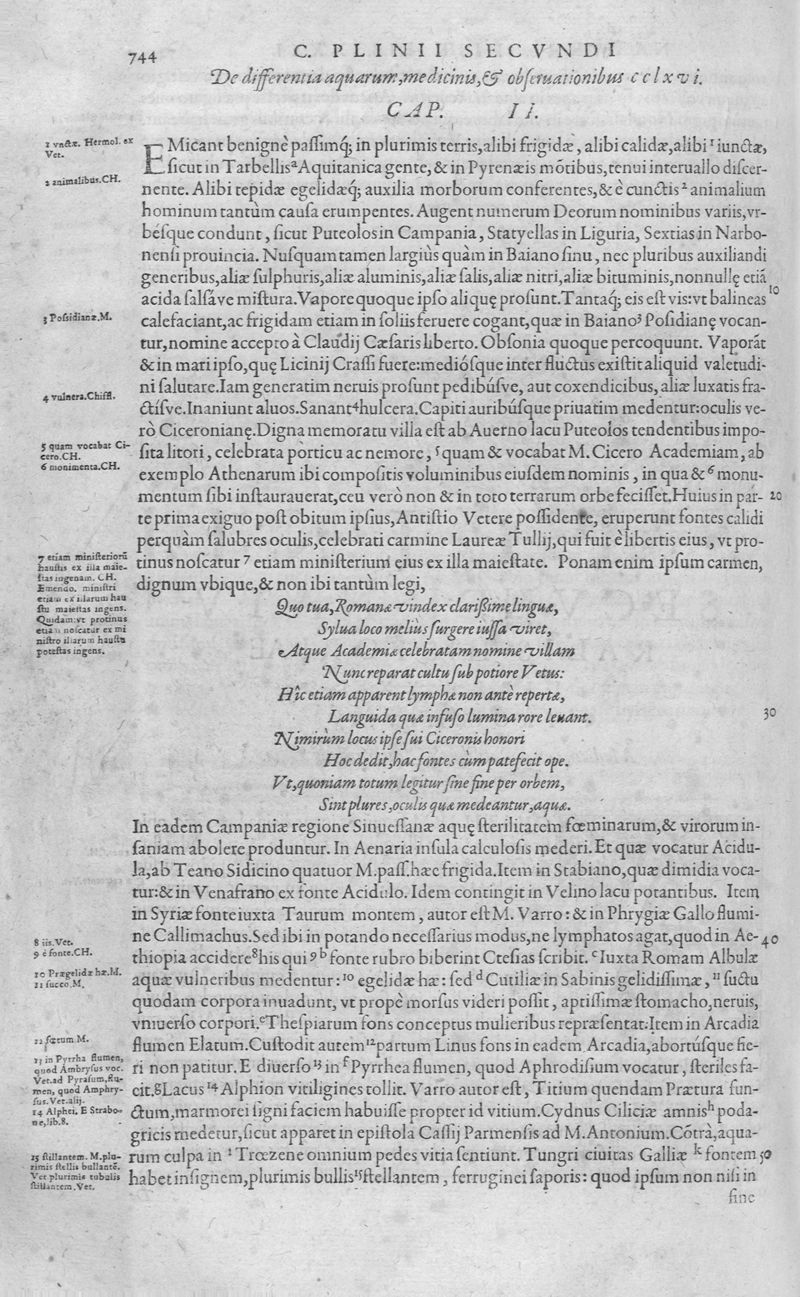 744
C. PLINII SECVNDI
De differentia aquarum, medicinis, & obseruationibus cclxvi.
CAP. Ii.
EMicant benignè passimq́; in plurimis terris, alibi frigidæ, alibi calidæ, alibi ¹ iunctæ,
sicut in Tarbellis ᵃ Aquitanica gente, & in Pyrenæis mōtibus, tenui interuallo discer-
nente. Alibi tepidæ egelidæq́; auxilia morborum conferentes, & è cunctis ² animalium
hominum tantùm causa erumpentes. Augent numerum Deorum nominibus variis, vr-
bésque condunt, sicut Puteolos in Campania, Statyellas in Liguria, Sextias in Narbo-
nensi prouincia. Nusquam tamen largiùs quàm in Baiano sinu, nec pluribus auxiliandi
generibus, aliæ sulphuris, aliæ aluminis, aliæ salis, aliæ nitri, aliæ bituminis, nonnullę etiā
acida salsáve mistura. Vapore quoque ipso aliquę prosunt. Tantaq́; eis est vis: vt balineas
10
calefaciant, ac frigidam etiam in soliis feruere cogant, quæ in Baiano ³ Posidianę vocan-
tur, nomine accepto à Claudij Cæsaris liberto. Obsonia quoque percoquunt. Vaporāt
& in mari ipso, quę Licinij Crassi fuere: mediósque inter fluctus existit aliquid valetudi-
ni salutare. Iam generatim neruis prosunt pedibúsve, aut coxendicibus, aliæ luxatis fra-
ctísve. Inaniunt aluos. Sanant ⁴ hulcera. Capiti auribúsque priuatim medentur: oculis ve-
rò Ciceronianę. Digna memoratu villa est ab Auerno lacu Puteolos tendentibus impo-
sita litori, celebrata porticu ac nemore, ⁵ quam & vocabat M. Cicero Academiam, ab
exemplo Athenarum ibi compositis voluminibus eiusdem nominis, in qua & ⁶ monu-
mentum sibi instaurauerat, ceu verò non & in toto terrarum orbe fecisset. Huius in par-
20
te prima exiguo post obitum ipsius, Antistio Vetere possidente, eruperunt fontes calidi
perquàm salubres oculis, celebrati carmine Laureæ Tullij, qui fuit è libertis eius, vt pro-
tinus noscatur ⁷ etiam ministerium eius ex illa maiestate. Ponam enim ipsum carmen,
dignum vbique, & non ibi tantùm legi,
Quo tua, Romanæ vindex clarißime linguæ,
Sylua loco meliùs surgere iussa viret,
Atque Academiæ celebratam nomine villam
Nunc reparat cultu sub potiore Vetus:
Hîc etiam apparent lymphæ non antè repertæ,
Languida quæ infuso lumina rore leuant.
30
Nimirùm locus ipse sui Ciceronis honori
Hoc dedit, hac fontes cùm patefecit ope.
Vt, quoniam totum legitur sine fine per orbem,
Sint plures, oculis quæ medeantur, aquæ.
In eadem Campaniæ regione Sinuessanæ aquę sterilitatem fœminarum, & virorum in-
saniam abolere produntur. In Aenaria insula calculosis mederi. Et quæ vocatur Acidu-
la, ab Teano Sidicino quatuor M. pass. hæc frigida. Item in Stabiano, quæ dimidia voca-
tur: & in Venafrano ex fonte Acidulo. Idem contingit in Velino lacu potantibus. Item
in Syriæ fonte iuxta Taurum montem, autor est M. Varro: & in Phrygiæ Gallo flumi-
ne Callimachus. Sed ibi in potando necessarius modus, ne lymphatos agat, quod in Ae-
40
thiopia accidere ⁸ his qui ⁹ ᵇ fonte rubro biberint Ctesias scribit. ᶜ Iuxta Romam Albulæ
aquæ vulneribus medentur: ¹⁰ egelidæ hæ: sed ᵈ Cutiliæ in Sabinis gelidissimæ, ¹¹ suctu
quodam corpora inuadunt, vt propè morsus videri possit, aptissimæ stomacho, neruis,
vniuerso corpori. ᵉ Thespiarum fons conceptus mulieribus repræsentat: Item in Arcadia
flumen Elatum. Custodit autem ¹² partum Linus fons in eadem Arcadia, abortúsque fie-
ri non patitur. E diuerso ¹³ in ᶠ Pyrrhea flumen, quod Aphrodisium vocatur, steriles fa-
cit. ᵍ Lacus ¹⁴ Alphion vitiligines tollit. Varro autor est, Titium quendam Prætura fun-
ctum, marmorei signi faciem habuisse propter id vitium. Cydnus Ciliciæ amnis ʰ poda-
gricis medetur, sicut apparet in epistola Cassij Parmensis ad M. Antonium. Cōtrà, aqua-
rum culpa in ⁱ Trœzene omnium pedes vitia sentiunt. Tungri ciuitas Galliæ ᵏ fontem
50
habet insignem, plurimis bullis ¹⁵ stellantem, ferruginei saporis: quod ipsum non nisi in
sine
1 vnctæ. Hermol. ex
Vet.
2 animalibus. CH.
3 Possidianæ. M.
4 vulnera. Chiffl.
5 quam vocabat Ci-
cero. CH.
6 monimenta. CH.
7 etiam ministeriorū
haustis ex illa maie-
stas ingenam. CH.
Emendo. ministri
etiam ex illarum hau
stu maiestas ingens.
Quidam: vt protinus
etiam noscatur ex mi
nistro illarum haustu
potestas ingens.
8 iis. Vet.
9 è fonte. CH.
10 Prægelidæ hæ. M.
11 succo. M.
12 fœtum M.
13 in Pyrrha flumen,
quod Ambrysus voc.
Vet. ad Pyrasum, flu-
men, quod Amphry-
sus. Vet. alij.
14 Alphei. E Strabo-
ne, lib. 8.
15 stillantem. M. plu-
rimis stellis bullantē.
Vet plurimis tubulis
stillantem. Vet.